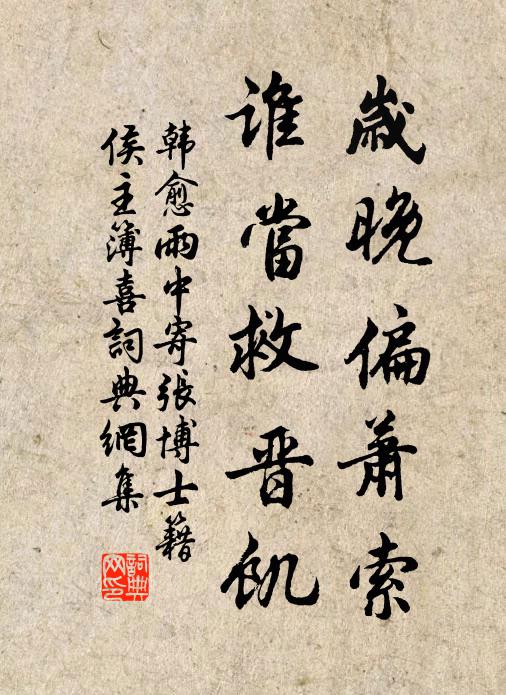 歲晚偏蕭索
誰當救晋飢
韩愈雨中寄張博士籍
侯主簿喜詞典網集
詞典
网印